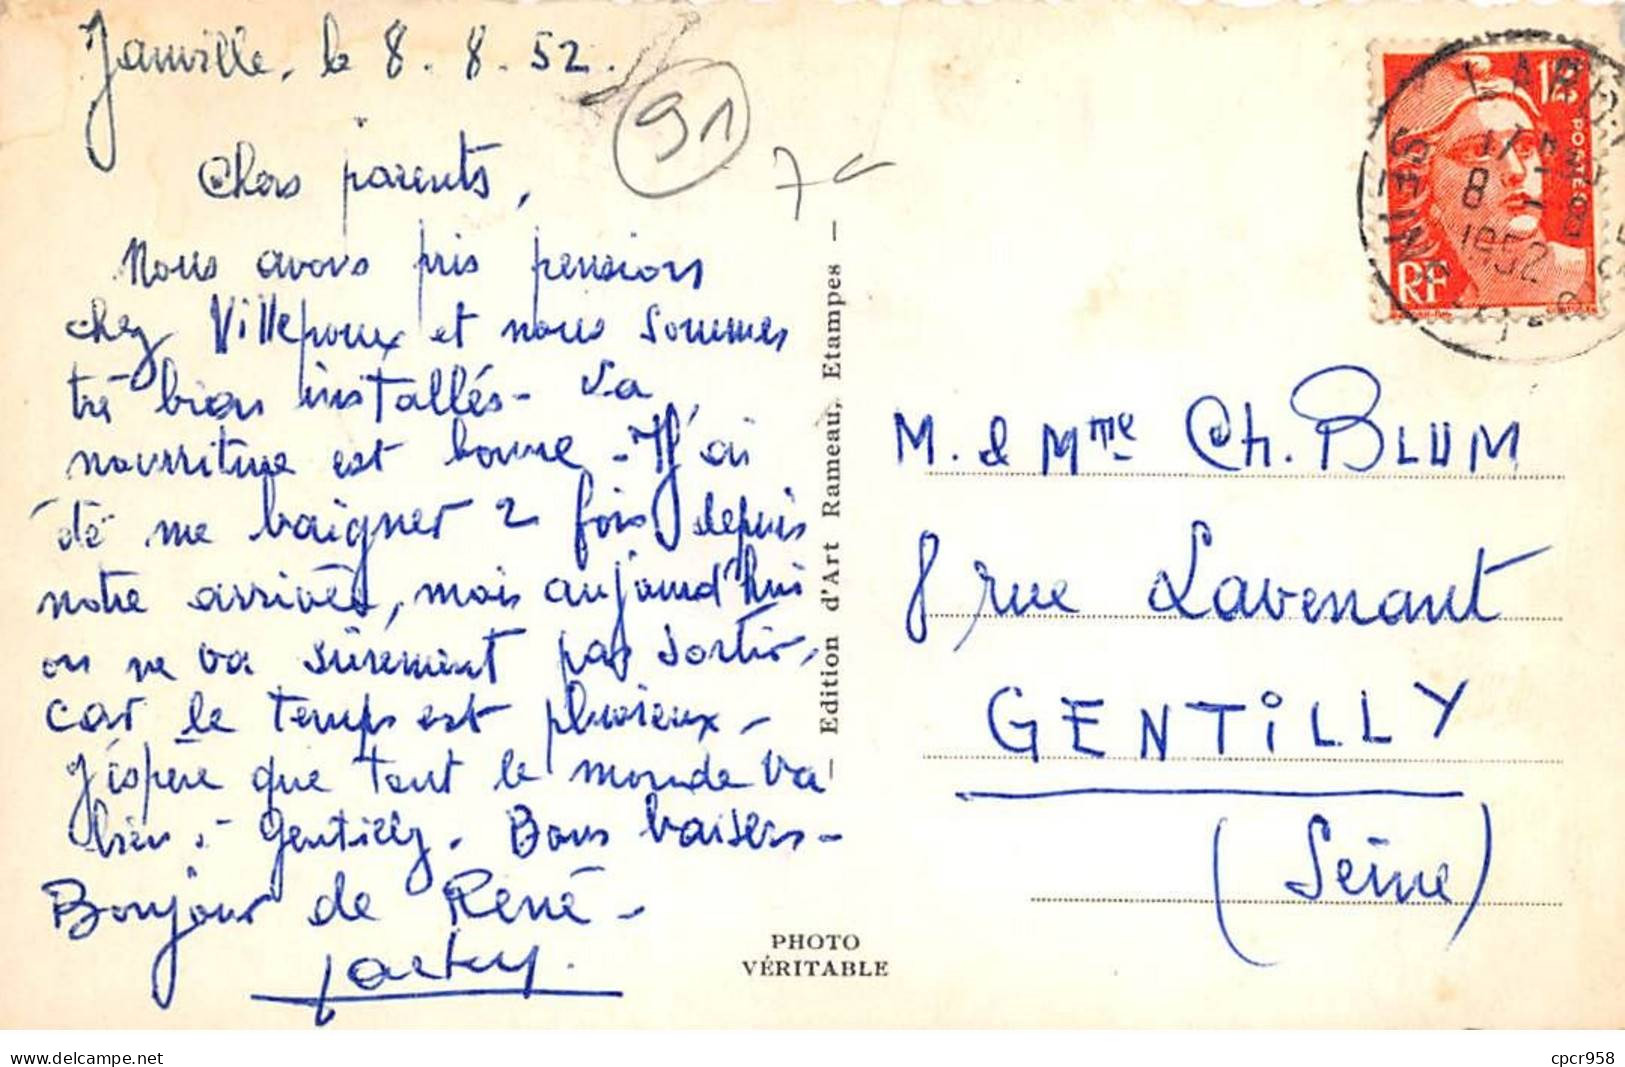 Janville, le 8. 8. 52.
91
Chers parents,
Nous avons pris pension
chez Villepoux et nous sommes
trè bien installés - La
nourriture est bonne - J'ai
été me baigner 2 fois depuis
notre arrivée, mais aujourd'hui
on ne va sûrement pas sortir,
car le temps est pluvieux -
J'espère que tout le monde va
bien à Gentilly. Bons baisers -
Bonjour de René -
Jacky.
Edition d'Art Rameau, Etampes
PHOTO
VÉRITABLE
POSTES
RF
LARDY
17
8 - 8
1952
SEINE
M. & Mme Ch. BLUM
8 rue Lavenant
GENTILLY
(Seine)
delcampe.net
cpcr958